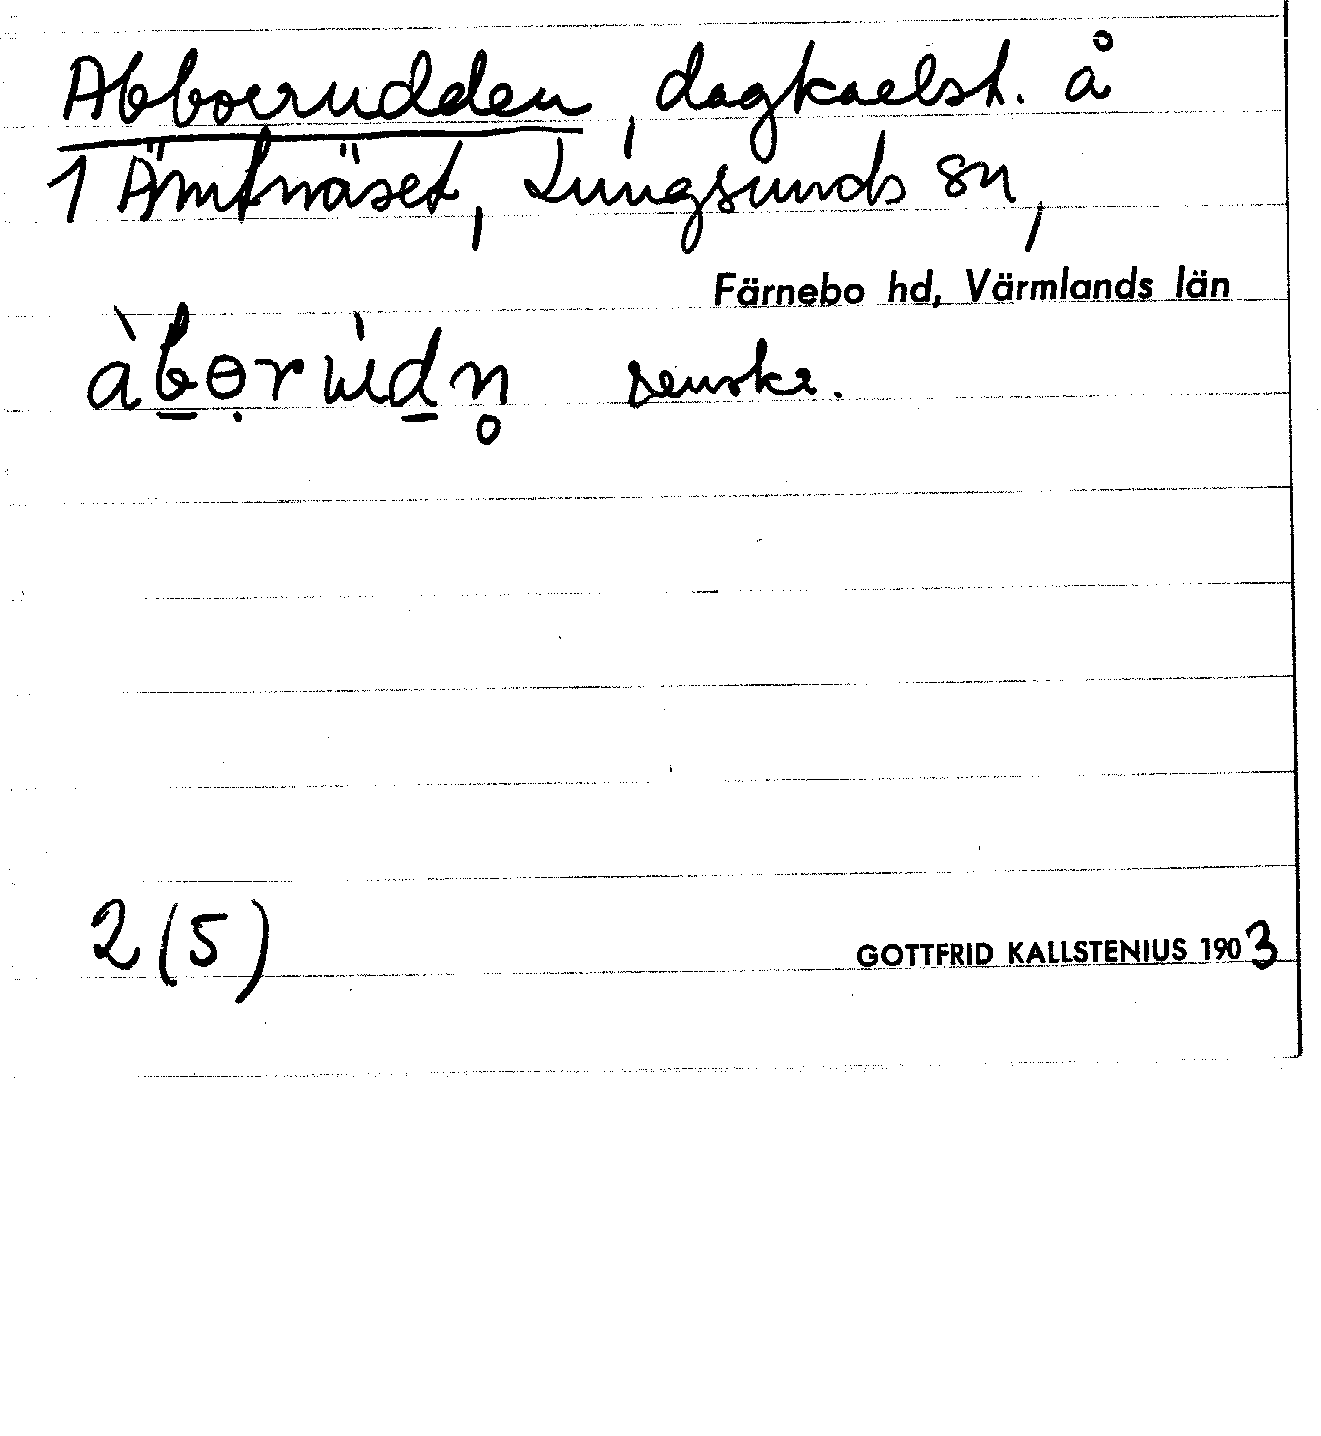 Abborrudden, dagkarlst. å
1 Ämtnäset, Lungsunds sn,
Färnebo hd, Värmlands län
2 (5)
GOTTFRID KALLSTENIUS 1903